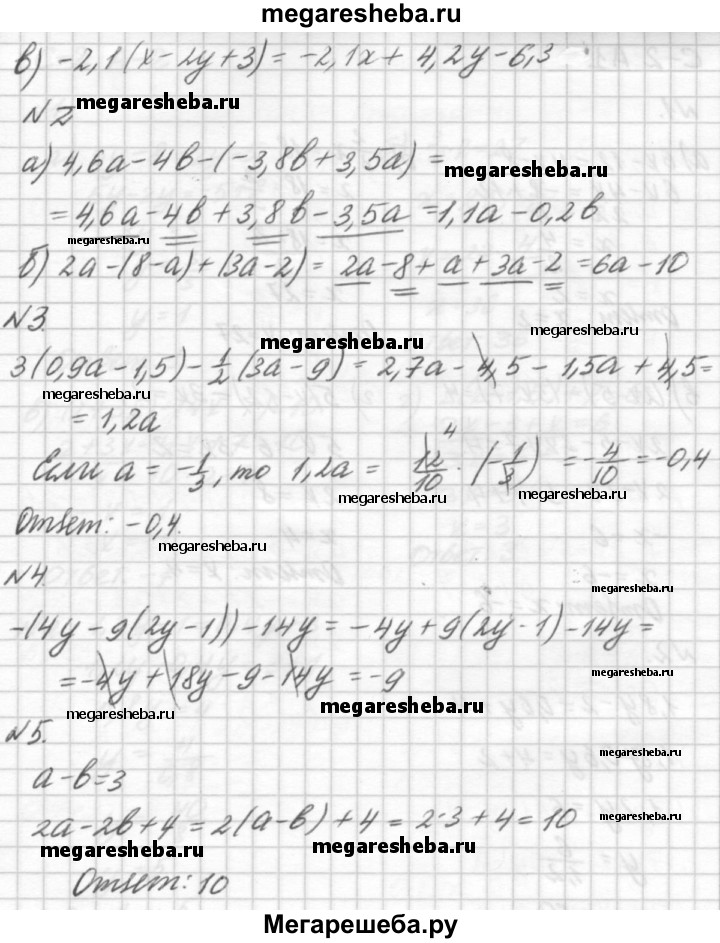 megaresheba.ru
в) -2,1(x-2y+3) = -2,1x + 4,2y - 6,3
megaresheba.ru
N2
а) 4,6a - 4b - (-3,8b + 3,5a) =
megaresheba.ru
= 4,6a - 4b + 3,8b - 3,5a = 1,1a - 0,2b
megaresheba.ru
б) 2a - (8-a) + (3a-2) = 2a - 8 + a + 3a - 2 = 6a - 10
N3.
megaresheba.ru
megaresheba.ru
3(0,9a - 1,5) - 1/2 (3a - 9) = 2,7a - 4,5 - 1,5a + 4,5 =
megaresheba.ru
= 1,2a
Если a = -1/3, то 1,2a = 12/10 · (-1/3) = -4/10 = -0,4
4
megaresheba.ru
megaresheba.ru
Ответ: -0,4.
megaresheba.ru
N4.
megaresheba.ru
-(4y - 9(2y-1)) - 14y = -4y + 9(2y-1) - 14y =
= -4y + 18y - 9 - 14y = -9
megaresheba.ru
megaresheba.ru
megaresheba.ru
N5.
megaresheba.ru
a-b=3
2a - 2b + 4 = 2(a-b) + 4 = 2·3 + 4 = 10
megaresheba.ru
megaresheba.ru
megaresheba.ru
Ответ: 10
Мегарешеба.ру